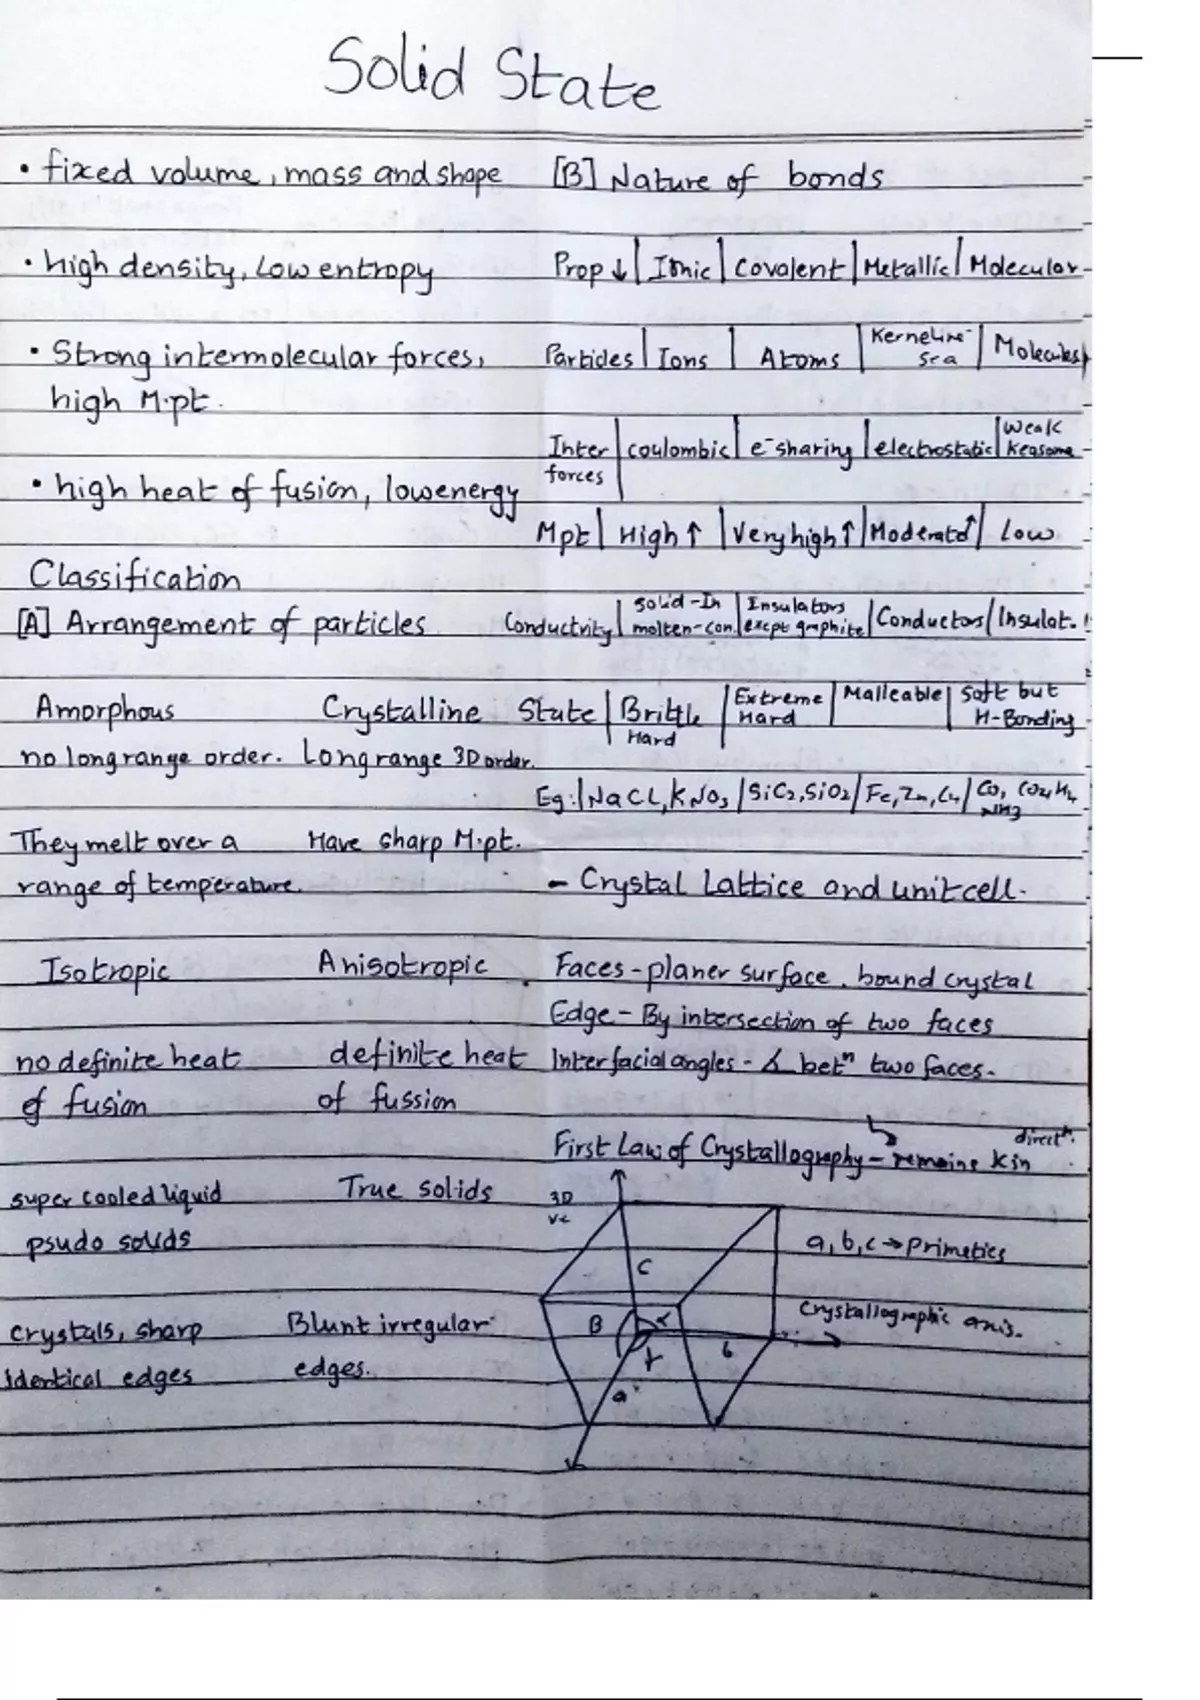 Solid State
• fixed volume, mass and shape
• high density, Low entropy
• Strong intermolecular forces,
high M.pt.
• high heat of fusion, low energy
Classification
[A] Arrangement of particles
Amorphous | Crystalline
no long range order. | Long range 3D order.
They melt over a | Have sharp M.pt.
range of temperature.
Isotropic | Anisotropic
no definite heat | definite heat
of fusion | of fussion
super cooled liquid | True solids
psudo solids
crystals, sharp | Blunt irregular
identical edges | edges.
[B] Nature of bonds
Prop ↓ | Ionic | Covalent | Metallic | Molecular
Particles | Ions | Atoms | Kernel in e⁻ sea | Molecules
Inter forces | coulombic | e⁻ sharing | electrostatic | weak
Mpt | High ↑ | Very high ↑ | Moderate ↑ | Low
Conductivity | solid - In molten - con. | Insulators excpt graphite | Conductors | Insulat.
State | Brittle Hard | Extreme Hard | Malleable | Soft but H-Bonding
Eg: | NaCl, KNO3 | SiC2, SiO2 | Fe, Zn, Cu | NH3
- Crystal Lattice and unit cell.
Faces - planer surface. bound crystal
Edge - By intersection of two faces
Interfacial angles - ∠ betⁿ two faces.
First Law of Crystallography - remains
3D
C
a, b, c → Primetics
B α
γ
b
a
Crystallographic axis.